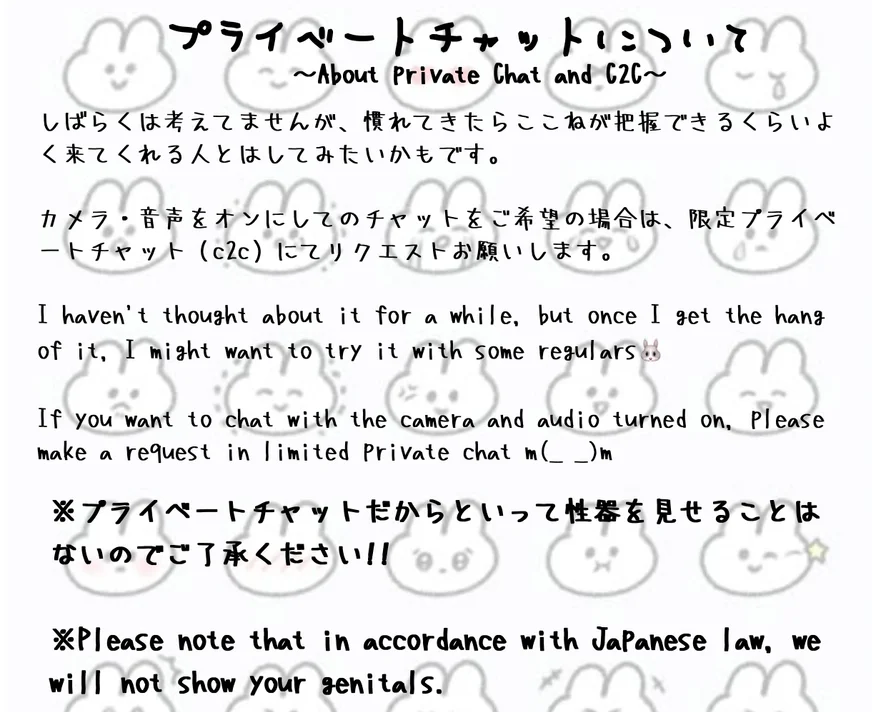 プライベートチャットについて
～About Private Chat and C2C～
しばらくは考えてませんが、慣れてきたらここねが把握できるくらいよ
く来てくれる人とはしてみたいかもです。
カメラ・音声をオンにしてのチャットをご希望の場合は、限定プライベ
ートチャット（c2c）にてリクエストお願いします。
I haven't thought about it for a while, but once I get the hang
of it, I might want to try it with some regulars🐰
If you want to chat with the camera and audio turned on, Please
make a request in limited Private chat m(_ _)m
※プライベートチャットだからといって性器を見せることは
ないのでご了承ください!!
※Please note that in accordance with Japanese law, we
will not show your genitals.